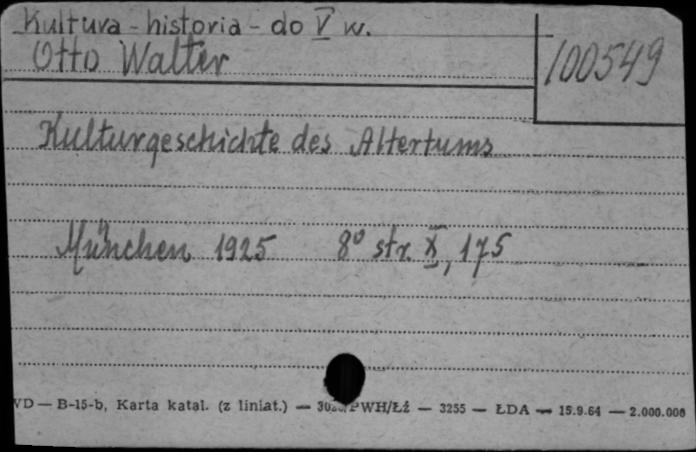 Kultura - historia - do V w.
Otto Walter
100549
Kulturgeschichte des Altertums
München 1925 8º str. X, 175
VD — B-15-b, Karta katal. (z liniat.) — PWH/Łź — 3255 — ŁDA — 15.9.64 — 2.000.000